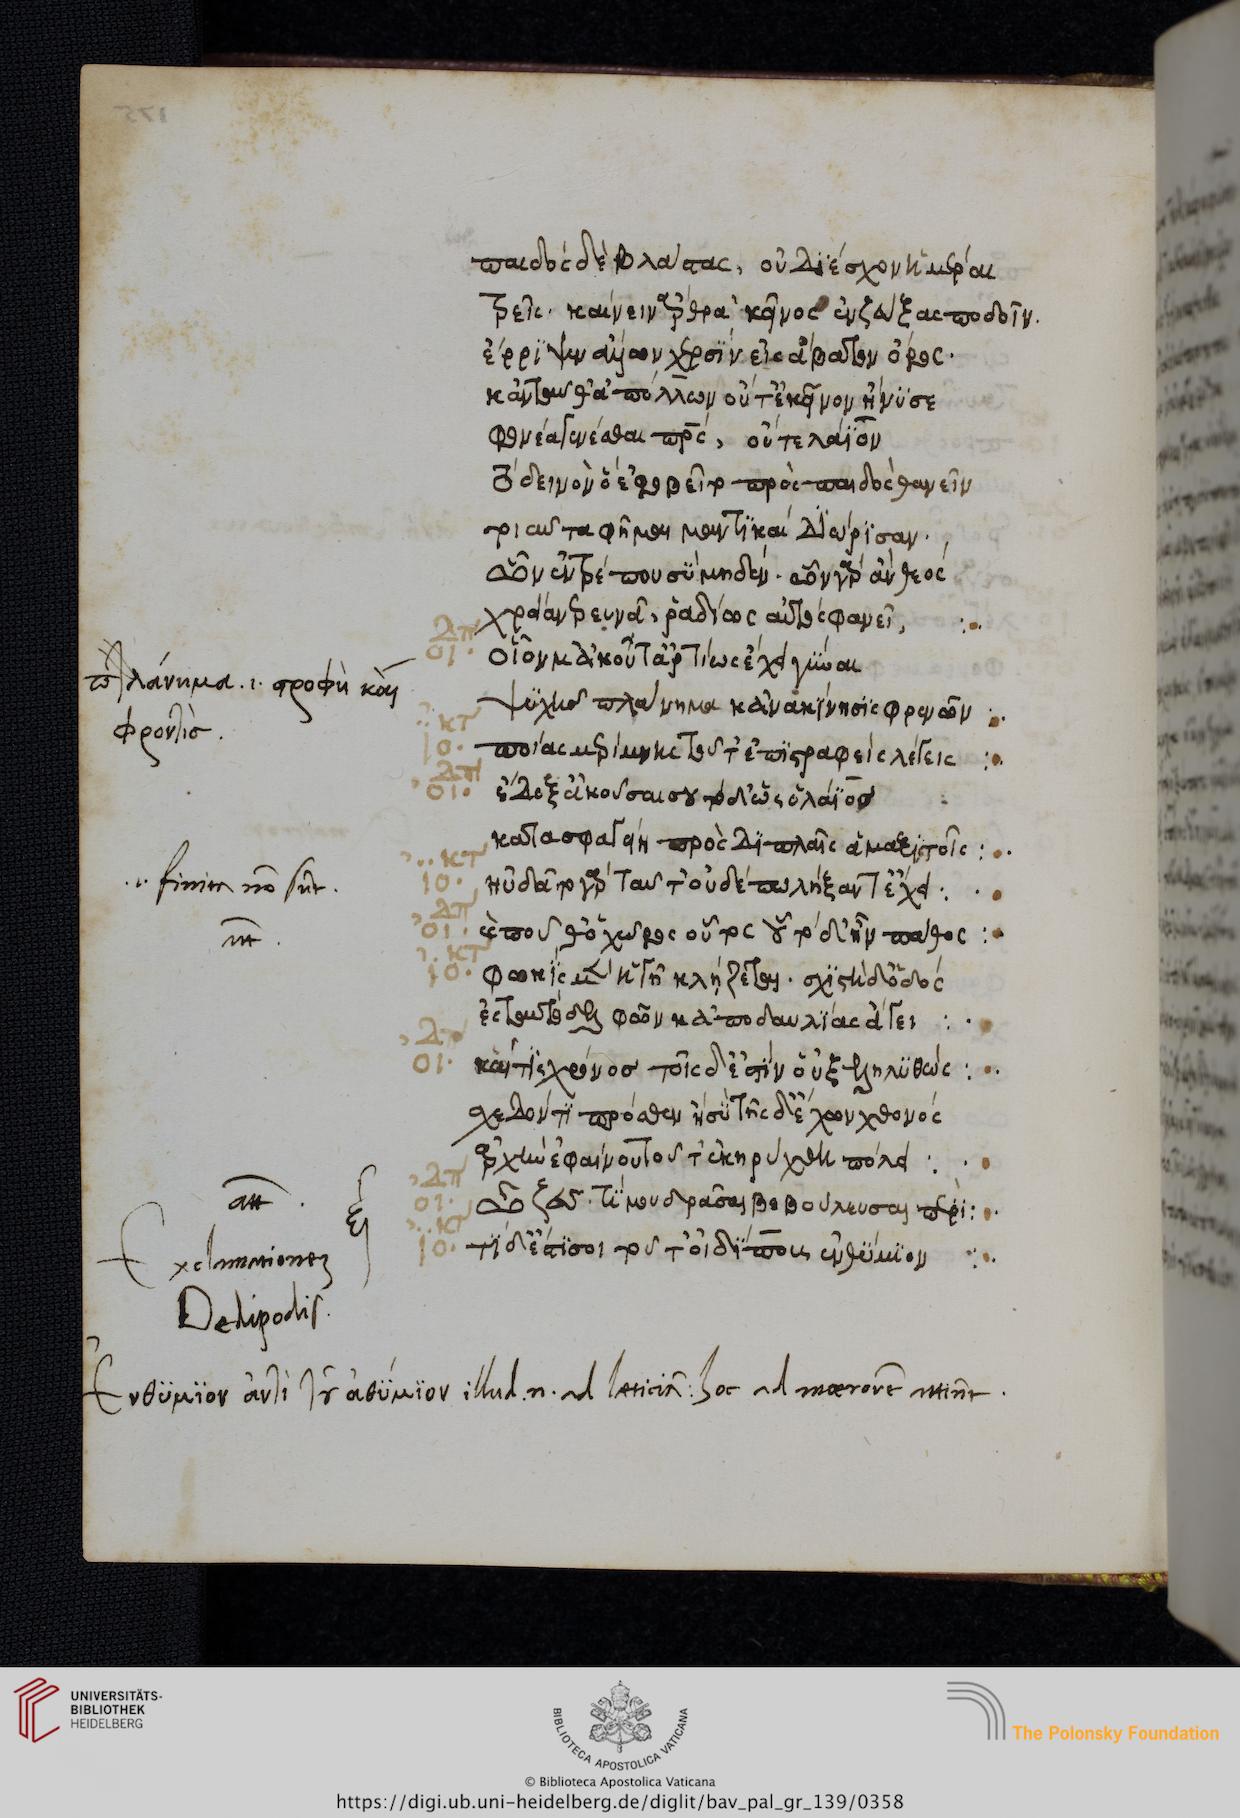 παιδὸς δὲ βλάστας, οὐ διέσχον ἡμέραι
τρεῖς. καί νειν ἄρθρα κεῖνος ἐνζεύξας ποδοῖν.
ἔρριψεν ἄλλων χερσὶν εἰς ἄβατον ὄρος.
κἀνταῦθ' ἀπόλλων οὔτ' ἐκεῖνον ἤνυσε
φονέα γενέσθαι πρς, οὔτε λάϊον
τὸ δεινὸν ὃ ἐφοβεῖτο πρὸς παιδὸς θανεῖν
τοιαῦτα φῆμαι μαντικαὶ διώρισαν.
ὧν ἐντρέπου σὺ μηδέν. ὧν γὰρ ἂν θεὸς
χρείαν ἐρευνᾷ, ῥᾳδίως αὐτὸς φανεῖ,
οι· οἷόν μ' ἀκούσαντ' ἀρτίως ἔχει γύναι
ψυχῆς πλάνημα κἀνακίνησις φρενῶν
ιο· ποίας μερίμνης τοῦτ' ἐπιστραφεὶς λέγεις
οι· ἔδοξ' ἀκοῦσαι σου τόδ' ὡς ὁ λάϊος
κατασφαγείη πρὸς διπλαῖς ἁμαξιτοῖς
ιο· ηὐδᾶτο γὰρ ταῦτ' οὐδέπω λήξαντ' ἔχει
οι· καὶ ποῦ 'σθ' ὁ χῶρος οὗτος οὗ τόδ' ἦν πάθος
ιο· φωκὶς μὲν ἡ γῆ κλῄζεται. σχιστὴ δ' ὁδὸς
ἐς ταυτὸ δελφῶν κἀπὸ δαυλίας ἄγει
οι· καὶ τίς χρόνος τοῖς δ' ἐστὶν οὑξεληλυθώς
σχεδόν τι πρόσθεν ἢ σὺ τῆς δ' ἔχων χθονὸς
ἀρχὴν ἐφαίνου τοῦτ' ἐκηρύχθη πόλει
οι· ὦ ζεῦ. τί μου δρᾶσαι βεβούλευσαι πέρι
ιο· τί δ' ἐστί σοι τοῦτ' οἰδίπους ἐνθύμιον
πλάνημα .ι. στροφὴ καὶ
φροντίς.
.ι. finita nō sūt.
att.
Exclamationes
Oedipodis.
Ενθύμιον ἀντὶ τοῦ ἀθύμιον illud .n. ad læticiā: hoc ad mœrorē attinēt.
UNIVERSITÄTS-
BIBLIOTHEK
HEIDELBERG
BIBLIOTECA APOSTOLICA VATICANA
The Polonsky Foundation
© Biblioteca Apostolica Vaticana
https://digi.ub.uni-heidelberg.de/diglit/bav_pal_gr_139/0358